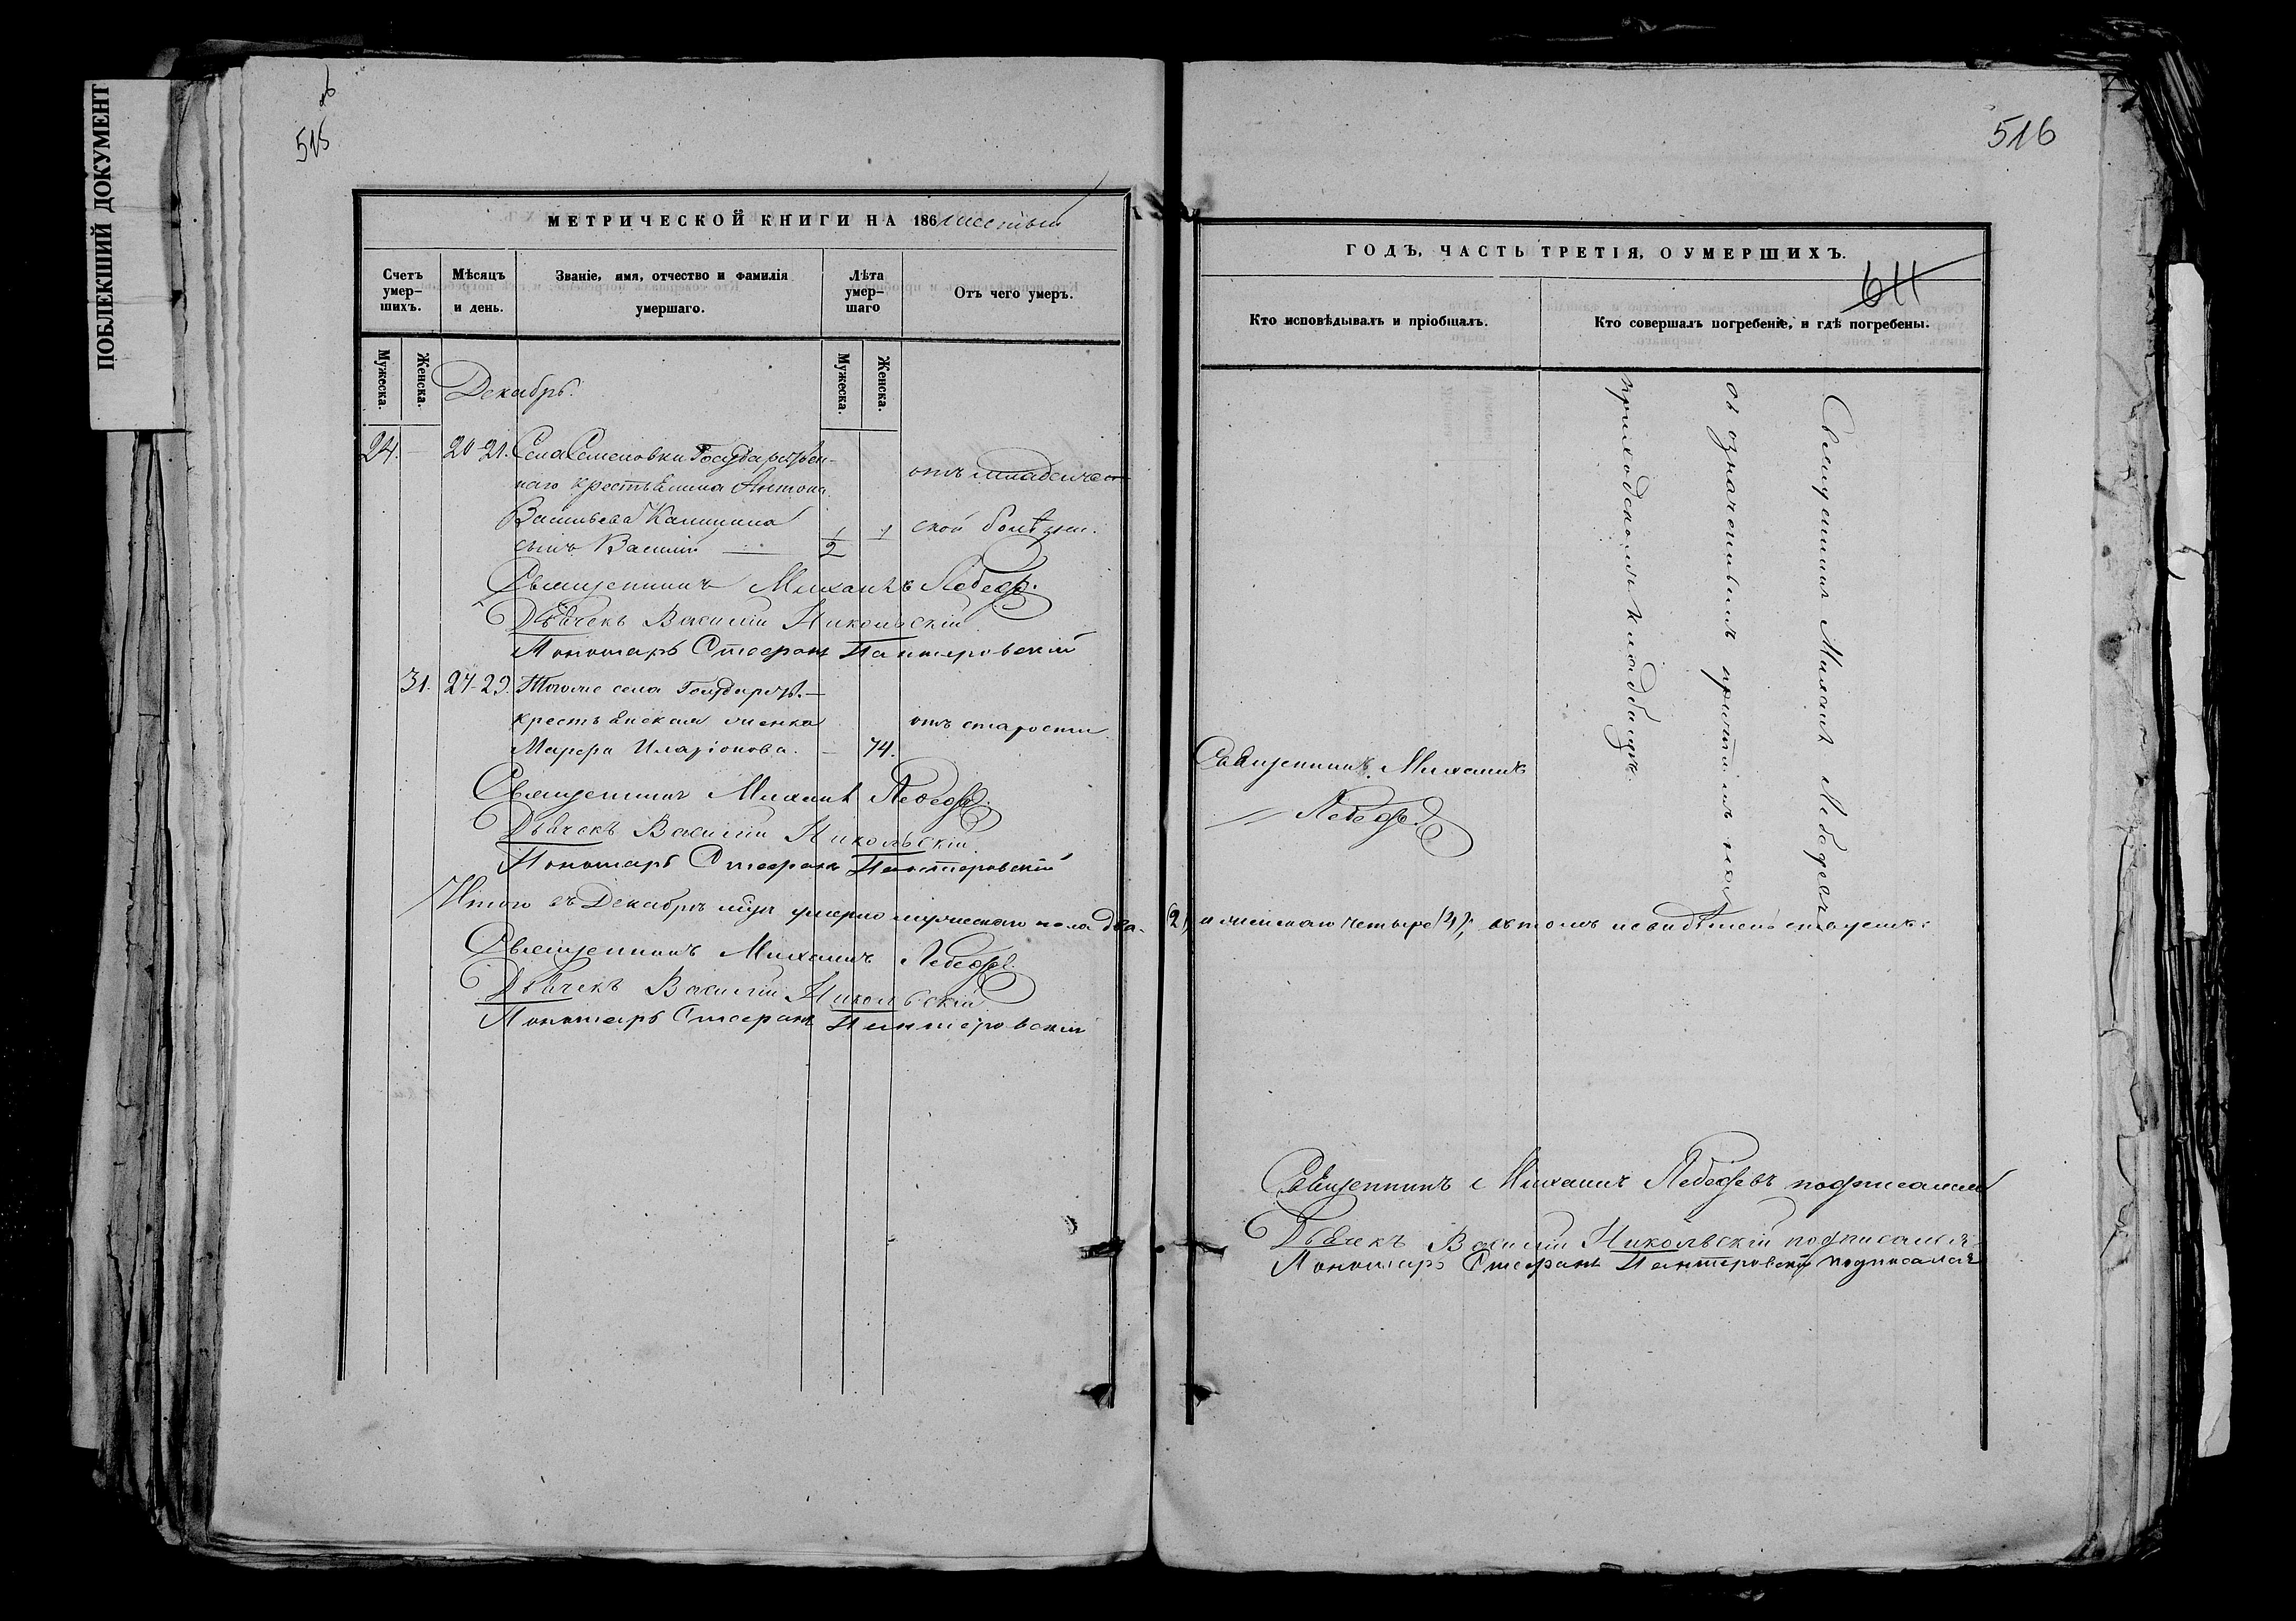 ПОБЛЕКШИЙ ДОКУМЕНТ
515 об
МЕТРИЧЕСКОЙ КНИГИ НА 186 шестый
Счетъ умер-
шихъ.
Мѣсяцъ
и день.
Званіе, имя, отчество и фамилія
умершаго.
Лѣта
умер-
шаго
Отъ чего умеръ.
Мужеска.
Женска.
Мужеска.
Женска.
Декабрь.
24. — 20 21. Села Семеновки Государствен-
наго крестьянина Антона
Васильева Калинина
сынъ Василій — 1/2
отъ младенче-
ской болѣзни.
Священникъ Михаилъ Лебедев.
Дьячекъ Василій Никольскій
Пономарь Стефанъ
31. 27-29. Тогоже села Государств.
крестьянская женка
Марфа Иларіонова. — 74.
отъ старости
Священникъ Михаилъ Лебедев.
Дьячекъ Василій Никольскій.
Пономарь Стефанъ
Итого въ Декабрѣ умерло мужескаго пола два
Священникъ Михаилъ Лебедев.
Дьячекъ Василій Никольскій
Пономарь Стефанъ
516
ГОДЪ, ЧАСТЬ ТРЕТІЯ, О УМЕРШИХЪ.
611
Кто исповѣдывалъ и пріобщалъ.
Кто совершалъ погребеніе, и гдѣ погребены.
Священникъ Михаилъ Лебедевъ
съ означеннымъ причтомъ на
приходскомъ кладбищѣ
Священникъ Михаилъ
Лебедев.
(2) и женскаго четыре (4),
Священникъ Михаилъ Лебедевъ подписался
Дьячекъ Василій Никольскій подписался
Пономарь Стефанъ подписался